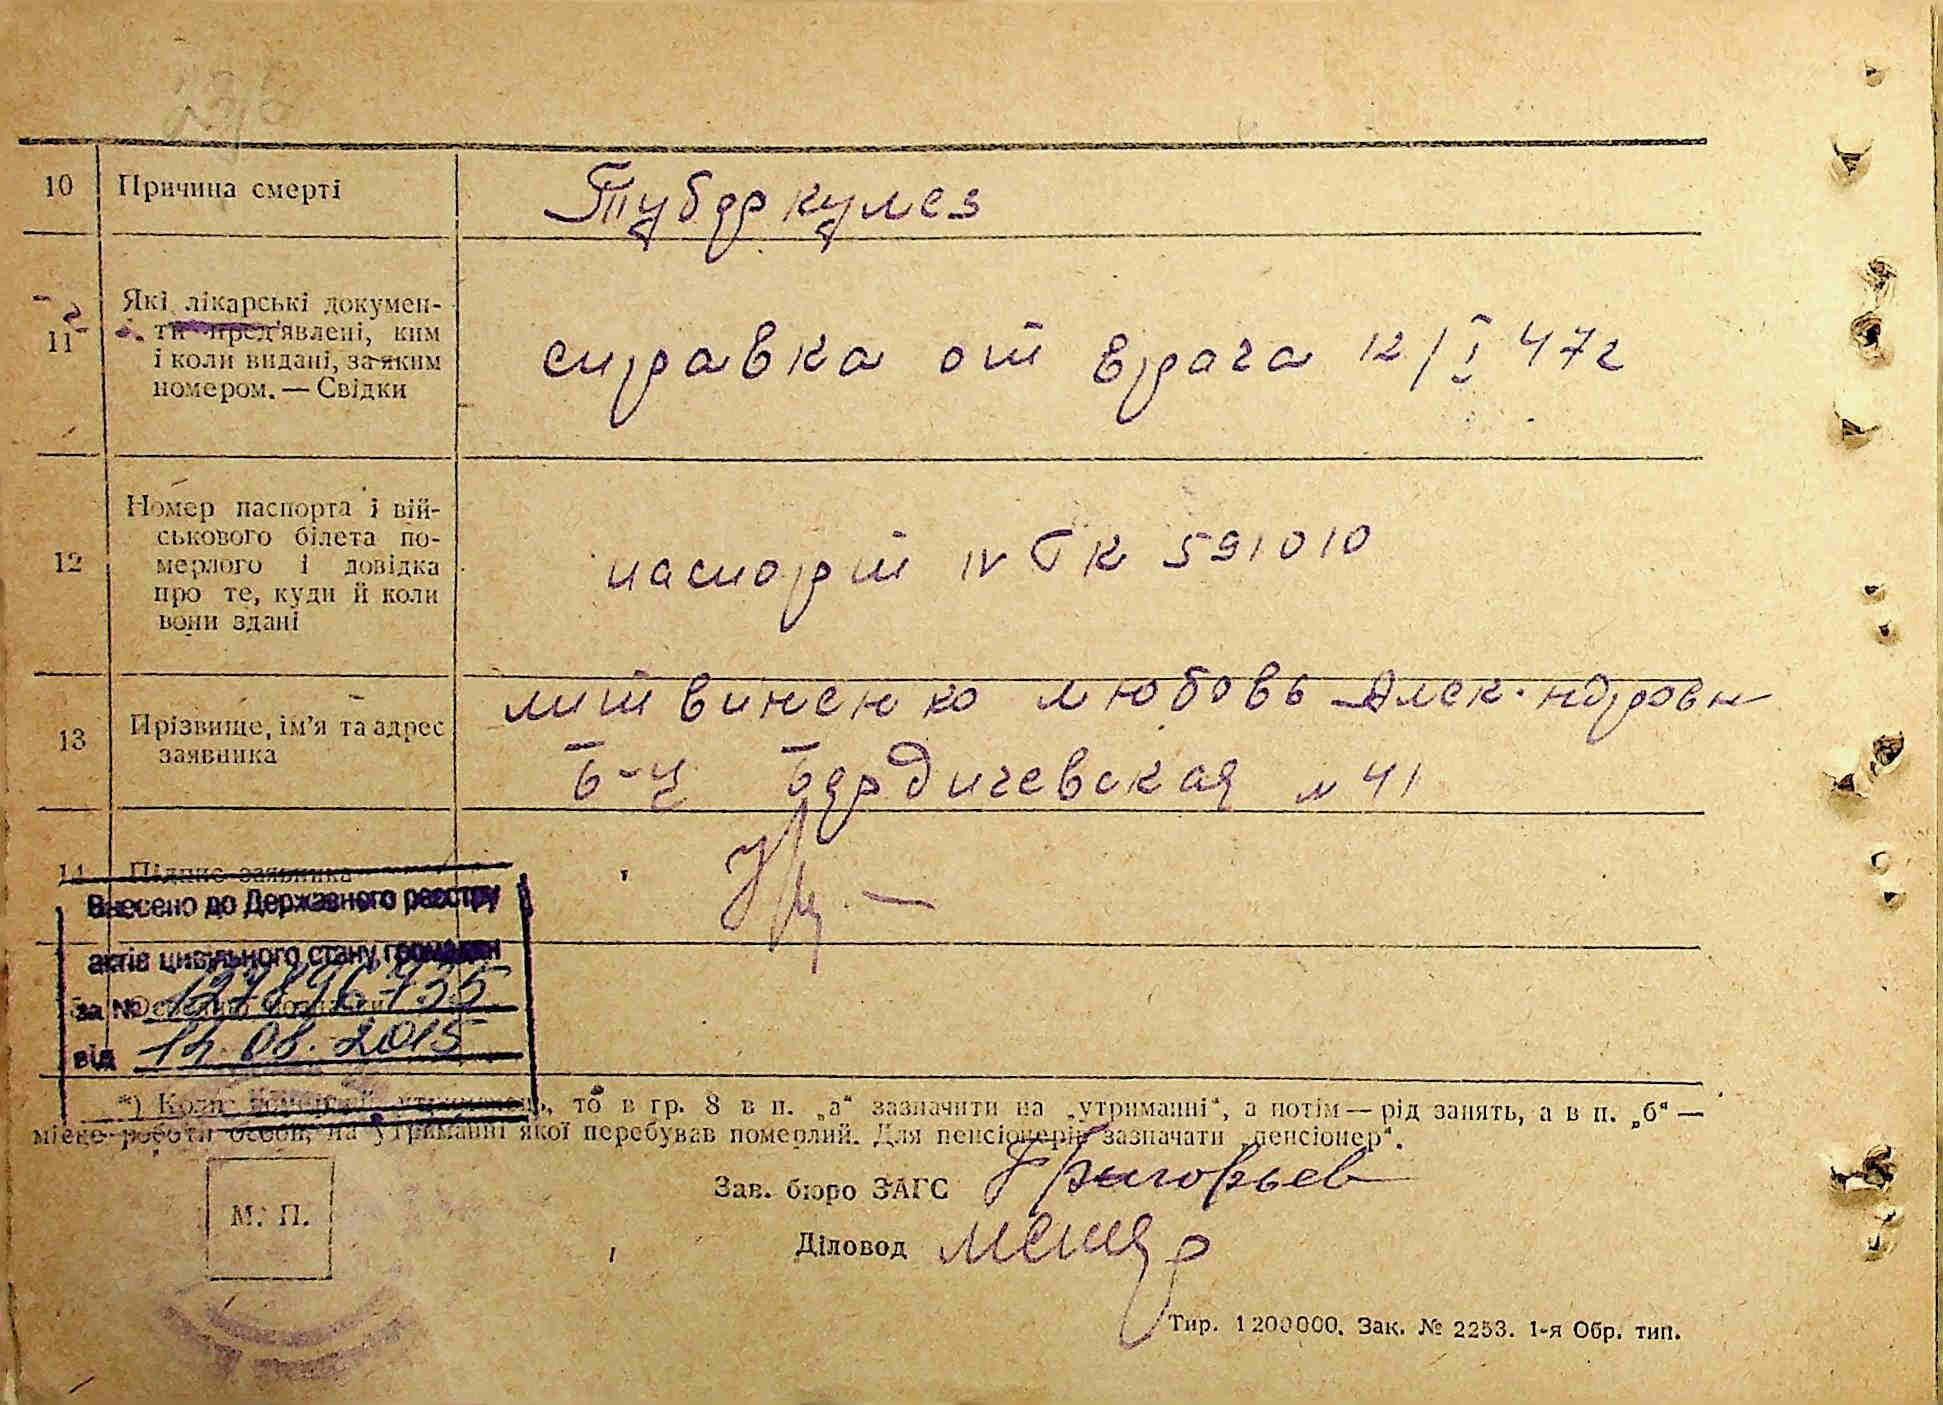 10 Причина смерті Туберкулез
Які лікарські докумен-
ти пред'явлені, ким
11 справка от врача 12/I 47г
і коли видані, за яким
номером. — Свідки
Номер паспорта і вій-
ськового білета по-
12 мерлого і довідка паспорт IV ТК 591010
про те, куди й коли
вони здані
литвиненко любовь
13 Прізвище, ім'я та адрес
заявника Б-ч Бердичевская № 41
14 Підпис заявника
Внесено до Державного реєстру
актів цивільного стану громадян
за № 127896735
від 14.08.2015
*) Коли то в гр. 8 в п. „а“ зазначити на „утриманні“, а потім — рід занять, а в п. „б“ —
місце роботи особи, на утриманні якої перебував померлий. Для пенсіонерів зазначати „пенсіонер“.
М. П.
Зав. бюро ЗАГС Григорьев
Діловод
Тир. 1200000. Зак. № 2253. 1-я Обр. тип.